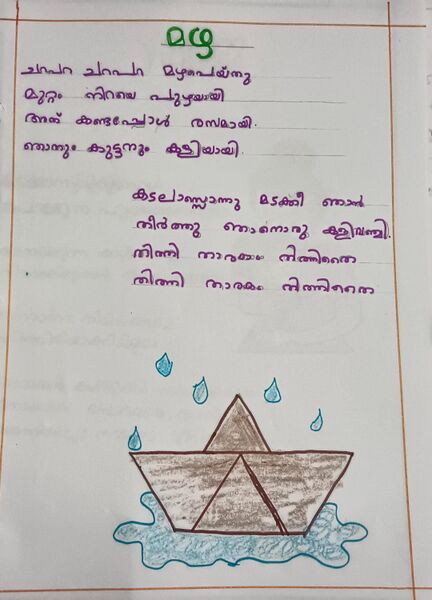 മഴ
ചറപറ ചറപറ മഴപെയ്തു
മുറ്റം നിറയെ പുഴയായി
അത് കണ്ടപ്പോൾ രസമായി.
ഞാനും കുട്ടനും കളിയായി.
കടലാസ്സൊന്നു മടക്കീ ഞാൻ
തീർത്തു ഞാനൊരു കളിവഞ്ചി.
തിത്തി താരകം തിത്തിതൈ
തിത്തി താരകം തിത്തിതൈ